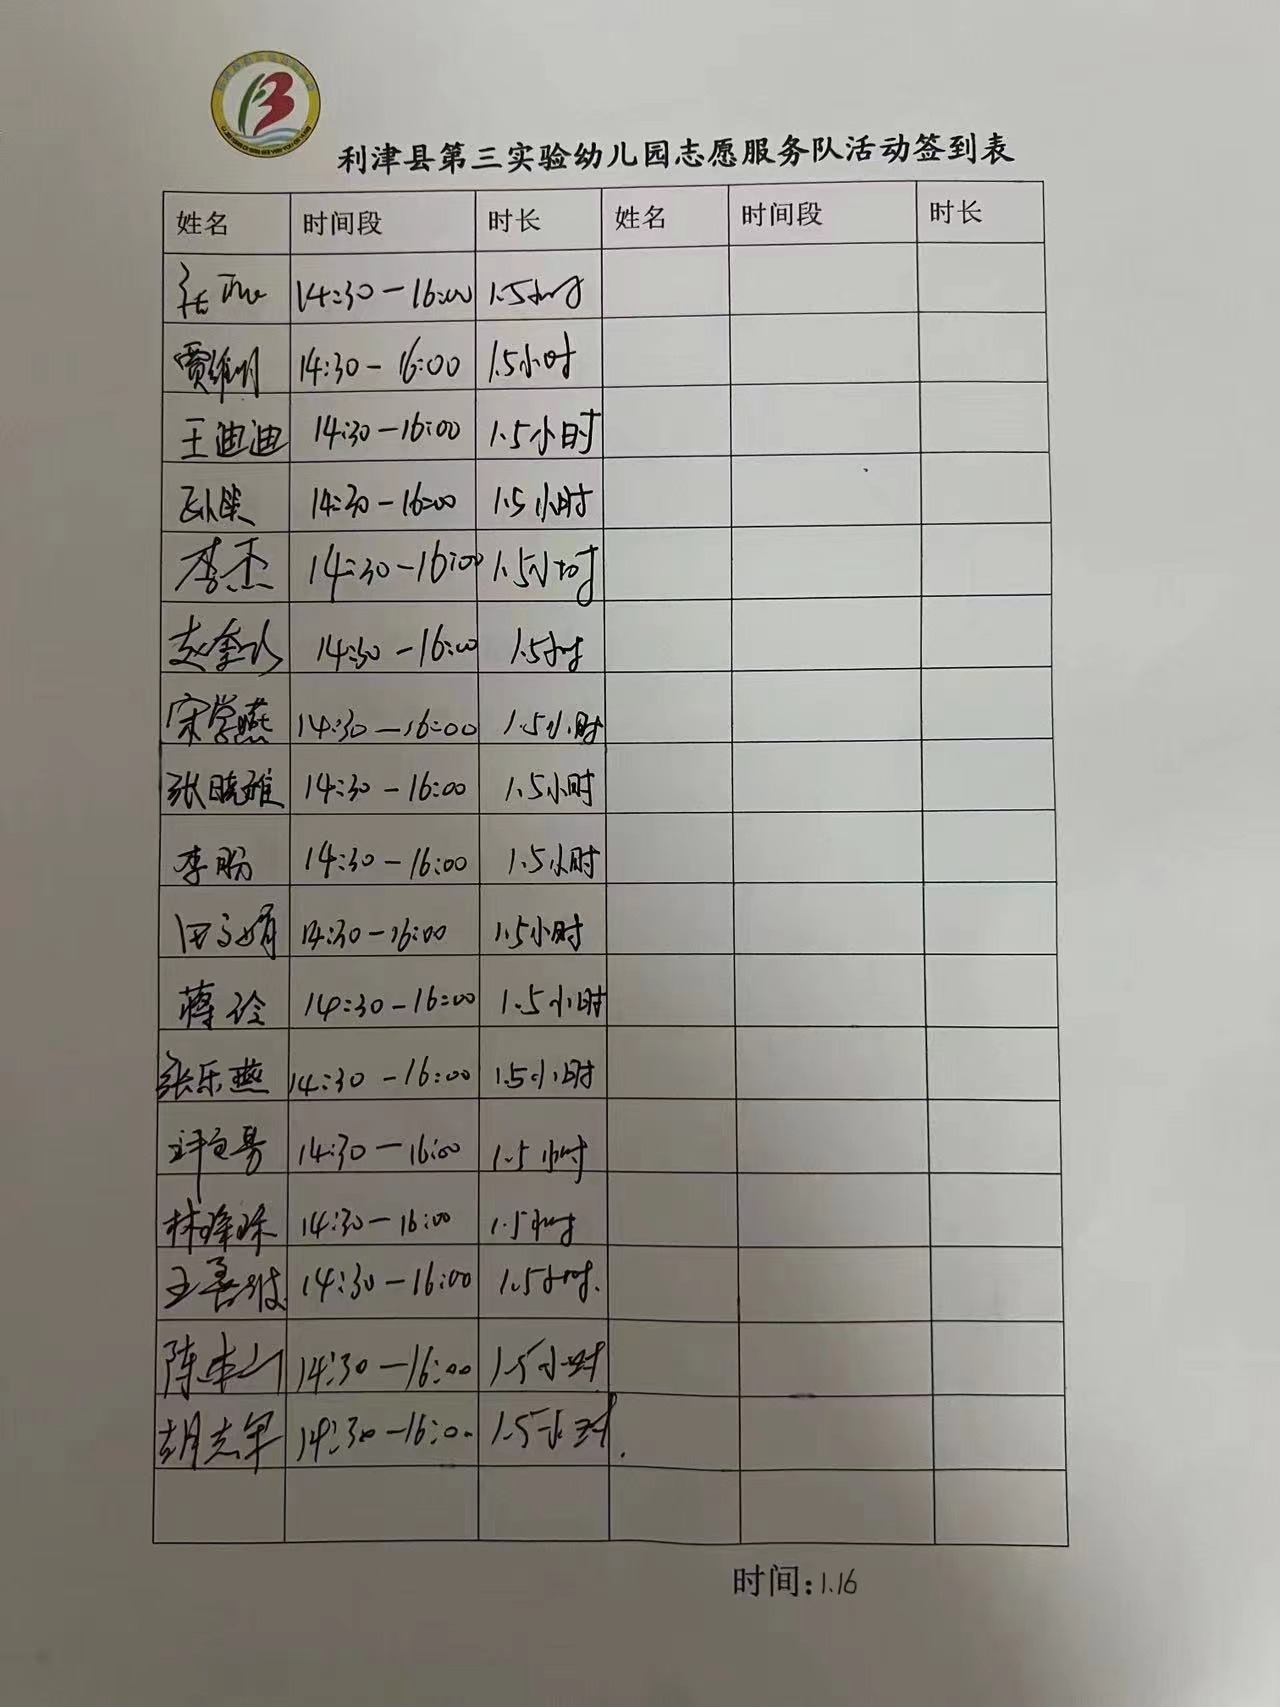 利津县第三实验幼儿园志愿服务队活动签到表
姓名 时间段 时长 姓名 时间段 时长
14:30-16:00 1.5小时
贾维明 14:30-16:00 1.5小时
王迪迪 14:30-16:00 1.5小时
14:30-16:00 1.5小时
李杰 14:30-16:00 1.5小时
14:30-16:00 1.5小时
宋学燕 14:30-16:00 1.5小时
张晓雅 14:30-16:00 1.5小时
李盼 14:30-16:00 1.5小时
14:30-16:00 1.5小时
蒋玲 14:30-16:00 1.5小时
张乐燕 14:30-16:00 1.5小时
14:30-16:00 1.5小时
14:30-16:00 1.5小时
14:30-16:00 1.5小时.
14:30-16:00 1.5小时
胡志军 14:30-16:00 1.5小时.
时间:1.16